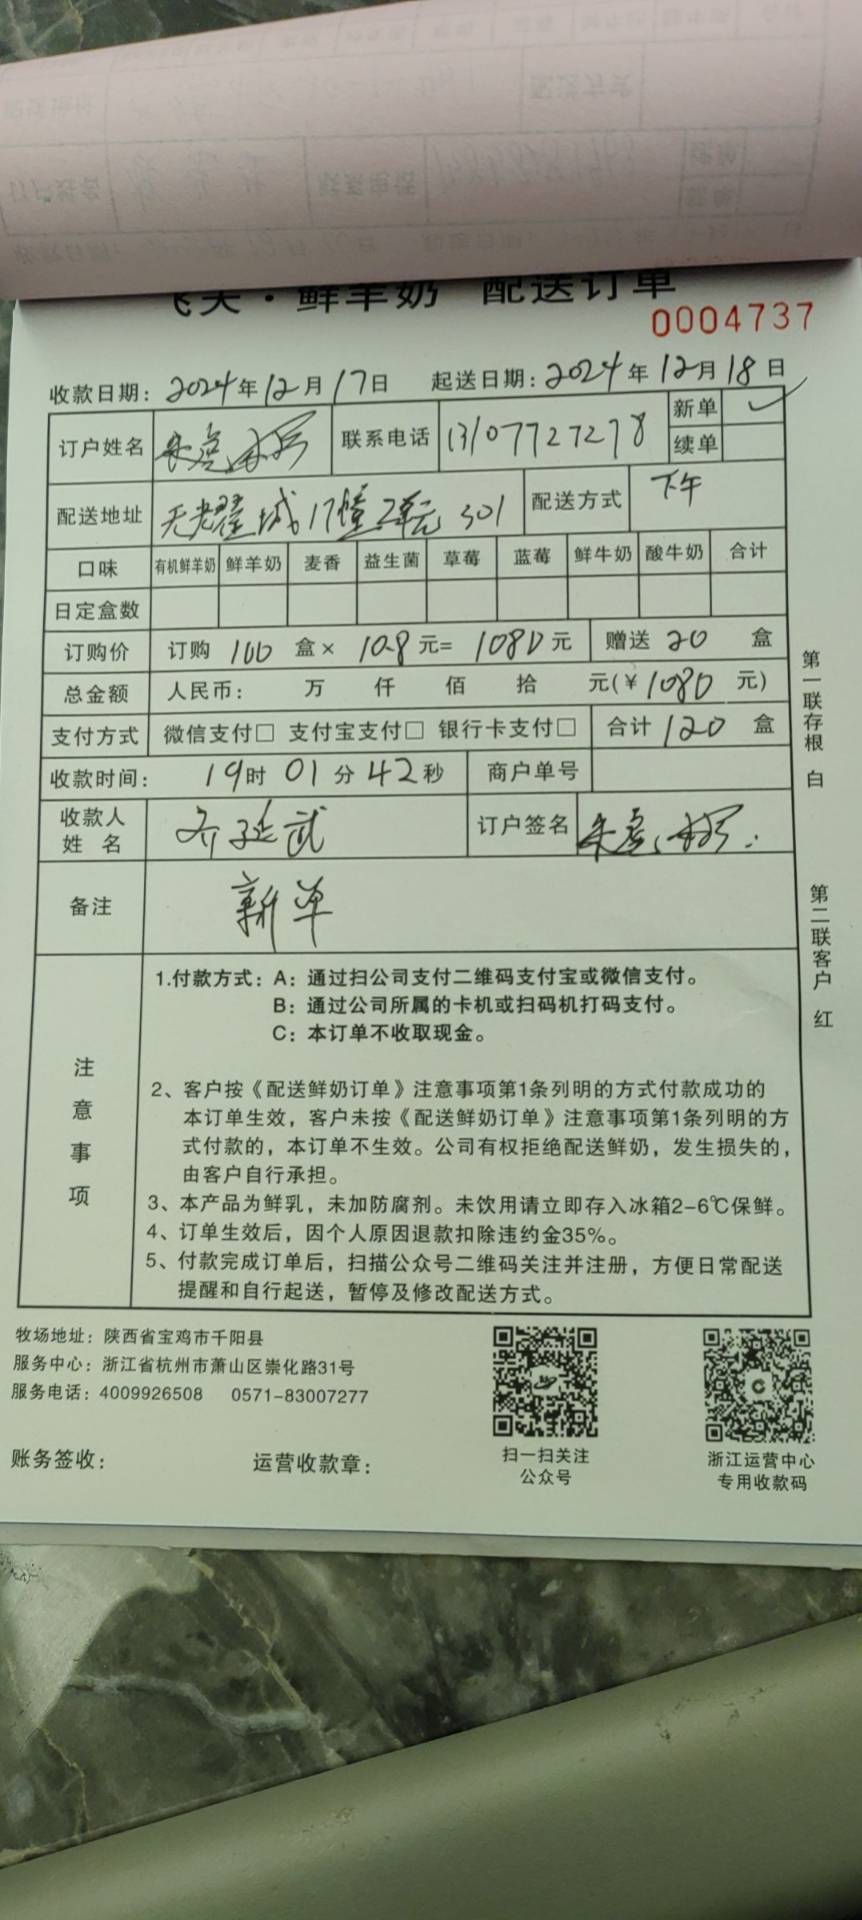 飞天·鲜羊奶 配送订单
0004737
收款日期：2024年12月17日 起送日期：2024年12月18日
订户姓名 联系电话 13107727278 新单 ✓
续单
配送地址 天耀城17幢2单元301 配送方式 下午
口味 有机鲜羊奶 鲜羊奶 麦香 益生菌 草莓 蓝莓 鲜牛奶 酸牛奶 合计
日定盒数
订购价 订购 100 盒× 10.8 元= 1080 元 赠送 20 盒
总金额 人民币： 万 仟 佰 拾 元(¥1080 元)
支付方式 微信支付□ 支付宝支付□ 银行卡支付□ 合计 120 盒
收款时间： 19时 01分 42秒 商户单号
收款人姓名 齐延武 订户签名
备注 新单
注意事项
1.付款方式：A：通过扫公司支付二维码支付宝或微信支付。
B：通过公司所属的卡机或扫码机打码支付。
C：本订单不收取现金。
2、客户按《配送鲜奶订单》注意事项第1条列明的方式付款成功的
本订单生效，客户未按《配送鲜奶订单》注意事项第1条列明的方
式付款的，本订单不生效。公司有权拒绝配送鲜奶，发生损失的，
由客户自行承担。
3、本产品为鲜乳，未加防腐剂。未饮用请立即存入冰箱2-6℃保鲜。
4、订单生效后，因个人原因退款扣除违约金35%。
5、付款完成订单后，扫描公众号二维码关注并注册，方便日常配送
提醒和自行起送，暂停及修改配送方式。
第一联存根 白
第二联客户 红
牧场地址：陕西省宝鸡市千阳县
服务中心：浙江省杭州市萧山区崇化路31号
服务电话：4009926508 0571-83007277
账务签收： 运营收款章：
扫一扫关注
公众号
浙江运营中心
专用收款码